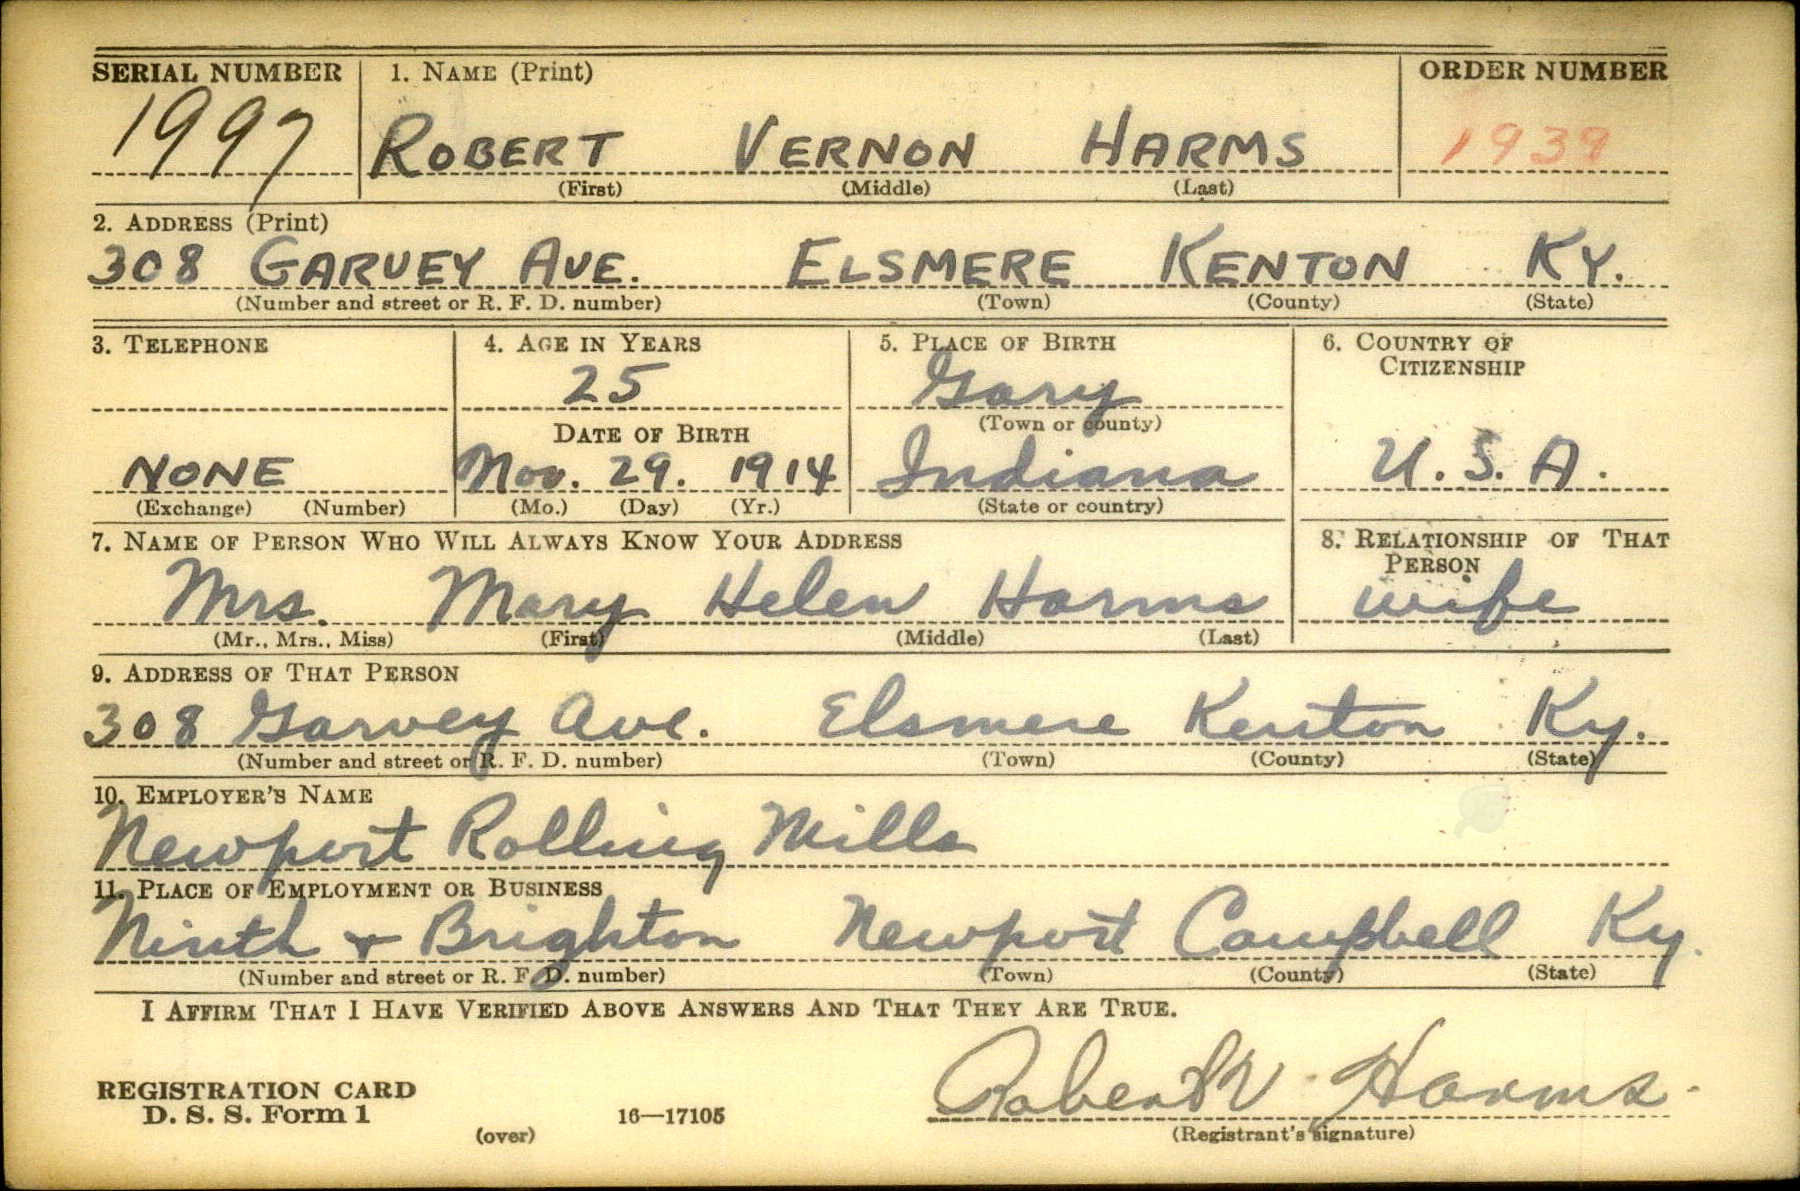 SERIAL NUMBER 1. NAME (Print) ORDER NUMBER
1997 ROBERT VERNON HARMS 1939
(First) (Middle) (Last)
2. ADDRESS (Print)
308 GARVEY AVE. ELSMERE KENTON KY.
(Number and street or R. F. D. number) (Town) (County) (State)
3. TELEPHONE 4. AGE IN YEARS 5. PLACE OF BIRTH 6. COUNTRY OF
CITIZENSHIP
25 Gary
DATE OF BIRTH (Town or county)
NONE Nov. 29. 1914 Indiana U.S.A.
(Exchange) (Number) (Mo.) (Day) (Yr.) (State or country)
7. NAME OF PERSON WHO WILL ALWAYS KNOW YOUR ADDRESS 8. RELATIONSHIP OF THAT
PERSON
Mrs. Mary Helen Harms wife
(Mr., Mrs., Miss) (First) (Middle) (Last)
9. ADDRESS OF THAT PERSON
308 Garvey Ave. Elsmere Kenton Ky.
(Number and street or R. F. D. number) (Town) (County) (State)
10. EMPLOYER'S NAME
Newport Rolling Mills
11. PLACE OF EMPLOYMENT OR BUSINESS
Ninth + Brighton Newport Campbell Ky.
(Number and street or R. F. D. number) (Town) (County) (State)
I AFFIRM THAT I HAVE VERIFIED ABOVE ANSWERS AND THAT THEY ARE TRUE.
Robert V Harms
REGISTRATION CARD
D. S. S. Form 1 16—17105
(over) (Registrant's signature)